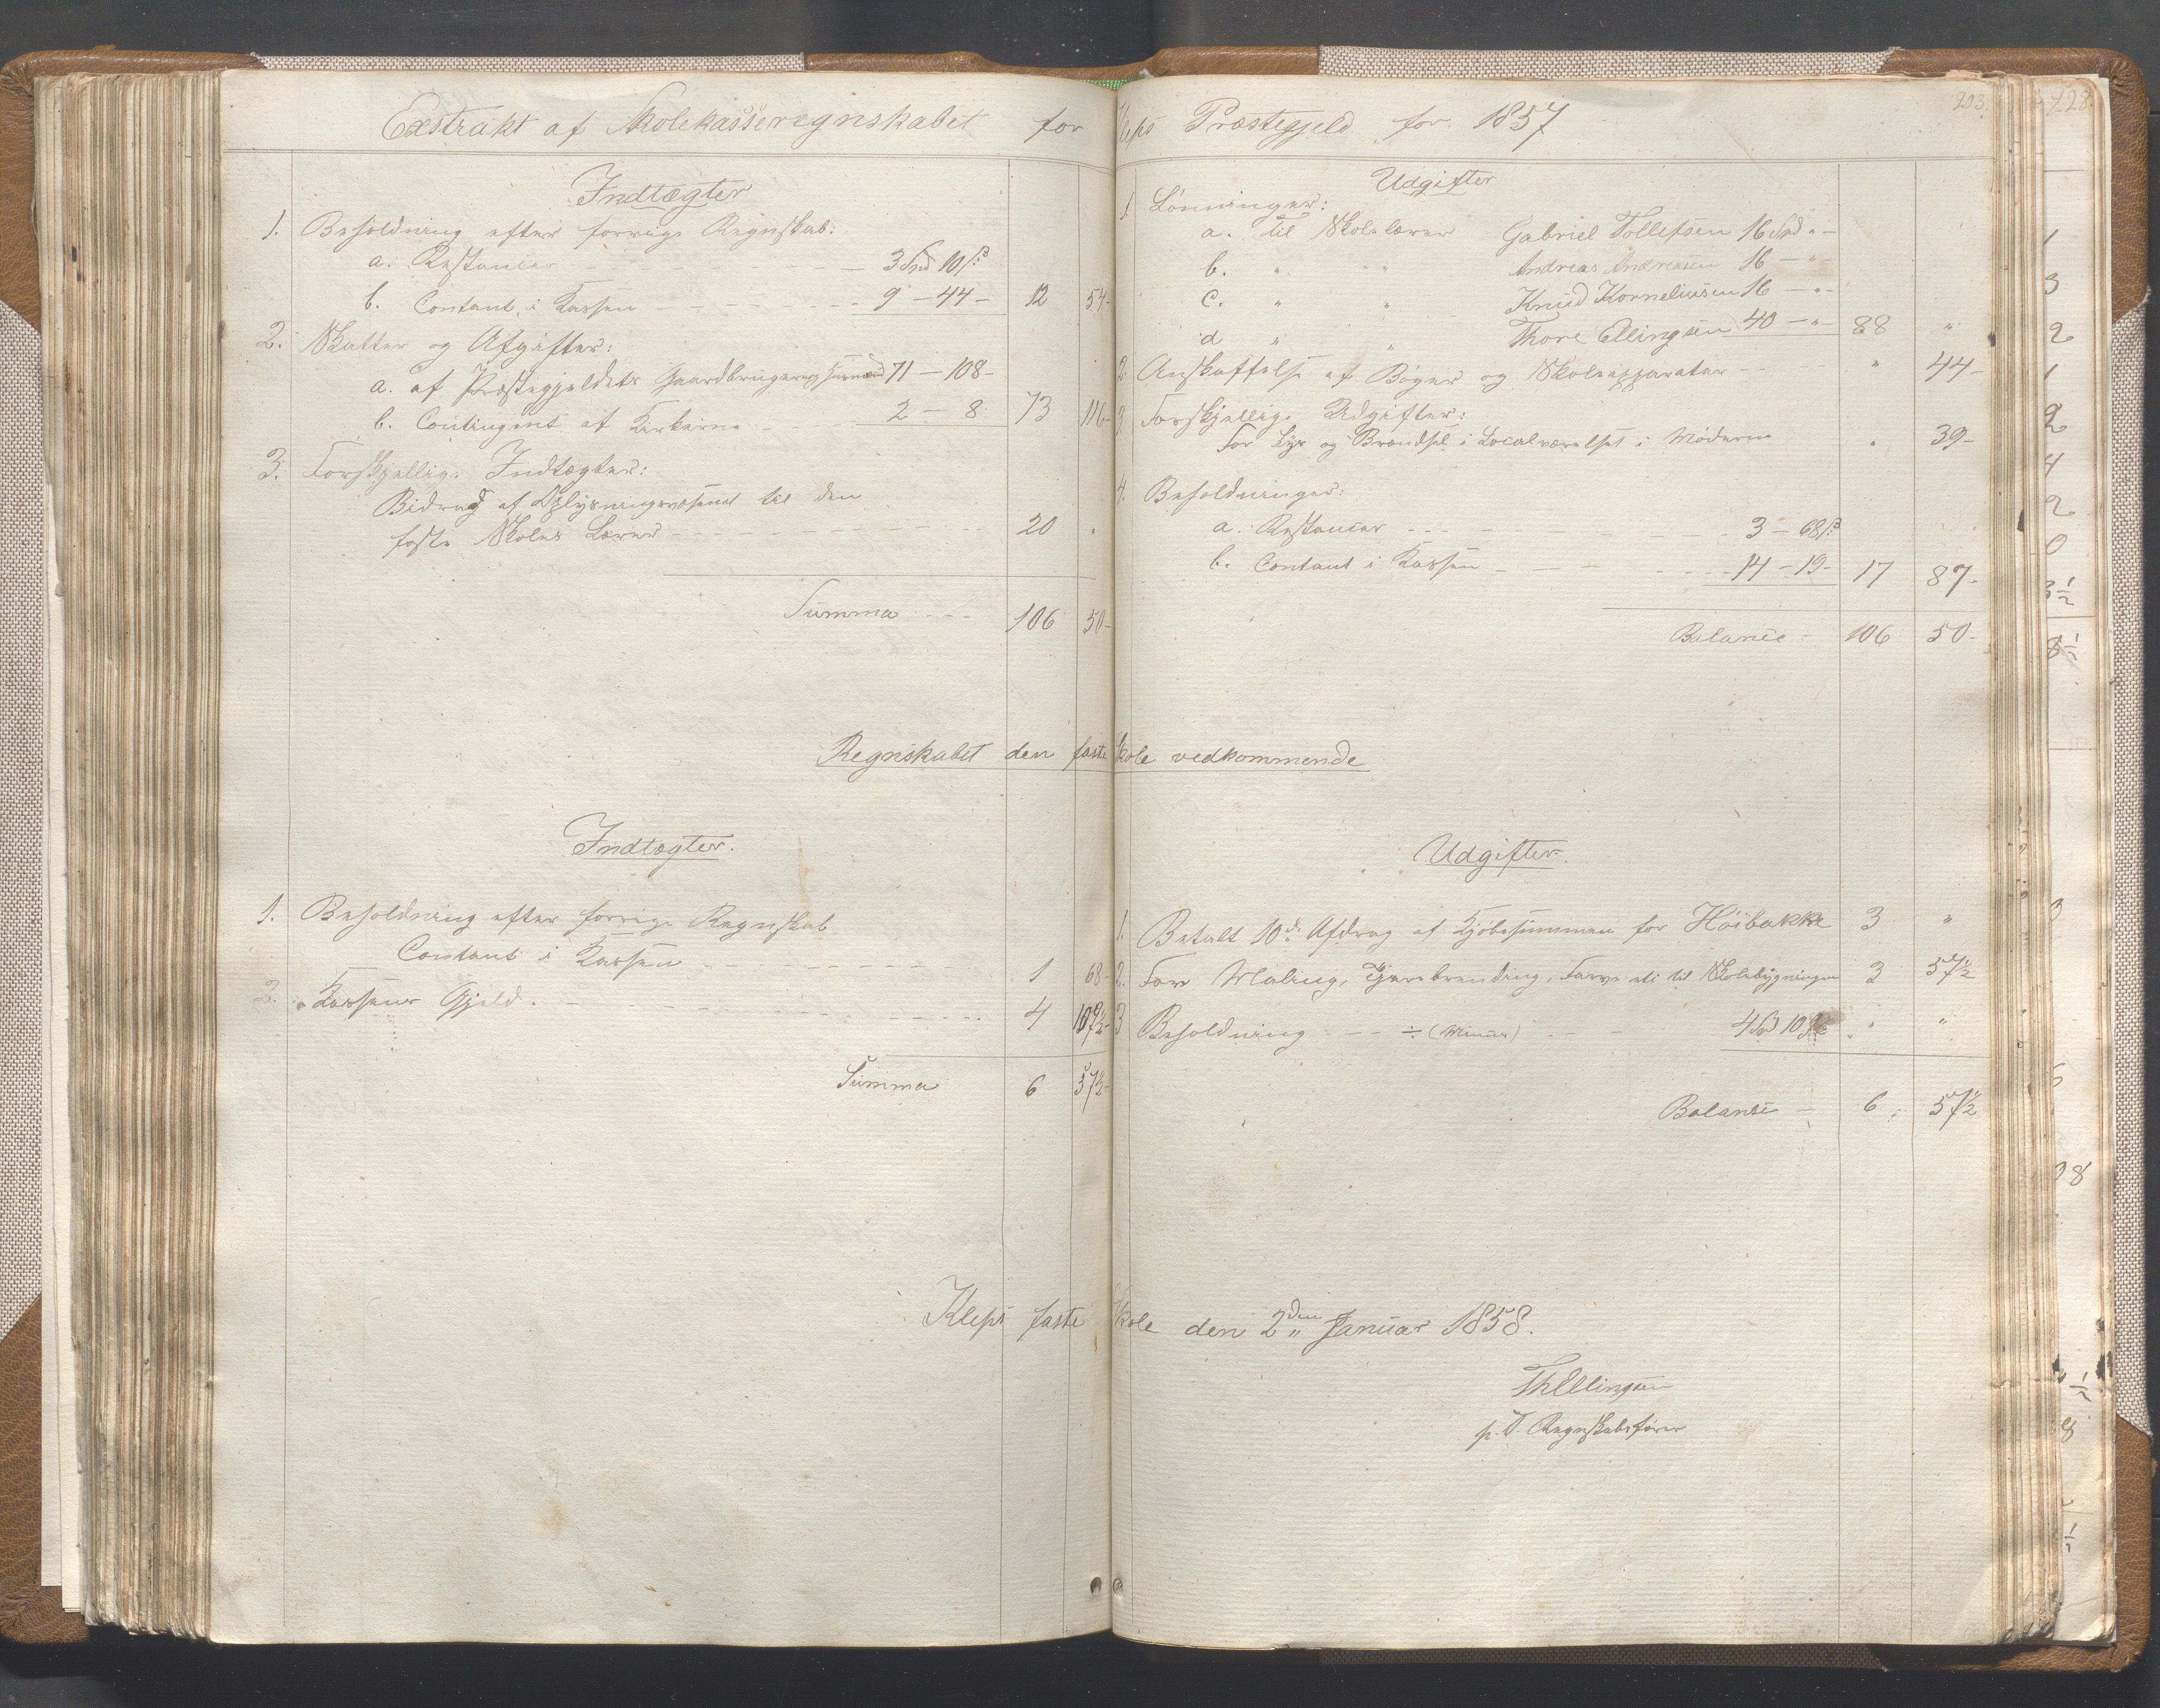 Exstrakt af Skolekasseregnskabet for Kleps Præstegjeld for 1857
Indtægter
1. Beholdning efter forrige Regnskab:
a. Restancer 3 Spd 10 ß
b. Contant i Kassen 9 - 44 - 12 54 -
2. Skatter og Afgifter:
a. af Præstegjeldets Gaardbrugere og Huusmænd 71 - 108 -
b. Contingent af Kirkerne 2 - 8 73 116 -
3. Forskjellige Indtægter:
Bidrag af Oplysningsvæsenet til den
faste Skoles Lærer 20 "
Summa 106 50 -
Udgifter
1. Lønninger:
a. til Skolelærer Gabriel Tollefsen 16 Spd " -
b. " " Andreas Andreasen 16 - " -
c. " " Knud Korneliusen 16 - " -
d " " Thore Ellingsen 40 - " - 88 "
2. Anskaffelse af Bøger og Skoleapparater " 44 -
3. Forskjellige Udgifter:
For Lys og Brændsel i Localværelset i Møderne " 39 -
4. Beholdninger:
a. Restancer 3 - 68 ß
b. Contant i Kassen 14 - 19 - 17 87 -
Balance - 106 50 -
Regnskabet den faste Skole vedkommende
Indtægter.
1. Beholdning efter forrige Regnskab
Contant i Kassen 1 68 -
2. Kassens Gjeld. 4 109½ -
Summa 6 57½ -
Udgifter.
1. Betalt 10de Afdrag af Kjøbesummen for Høibakke 3 "
2. For Maling, Tjærebrending, Farve etc til Skolebygningen 3 57½
3 Beholdning ÷ (Minus) 4 Spd 109½ " "
Balance - 6 57½
Kleps faste Skole den 2den Januar 1858.
ThEllingsen
p. T. Regnskabsfører
203.
228.